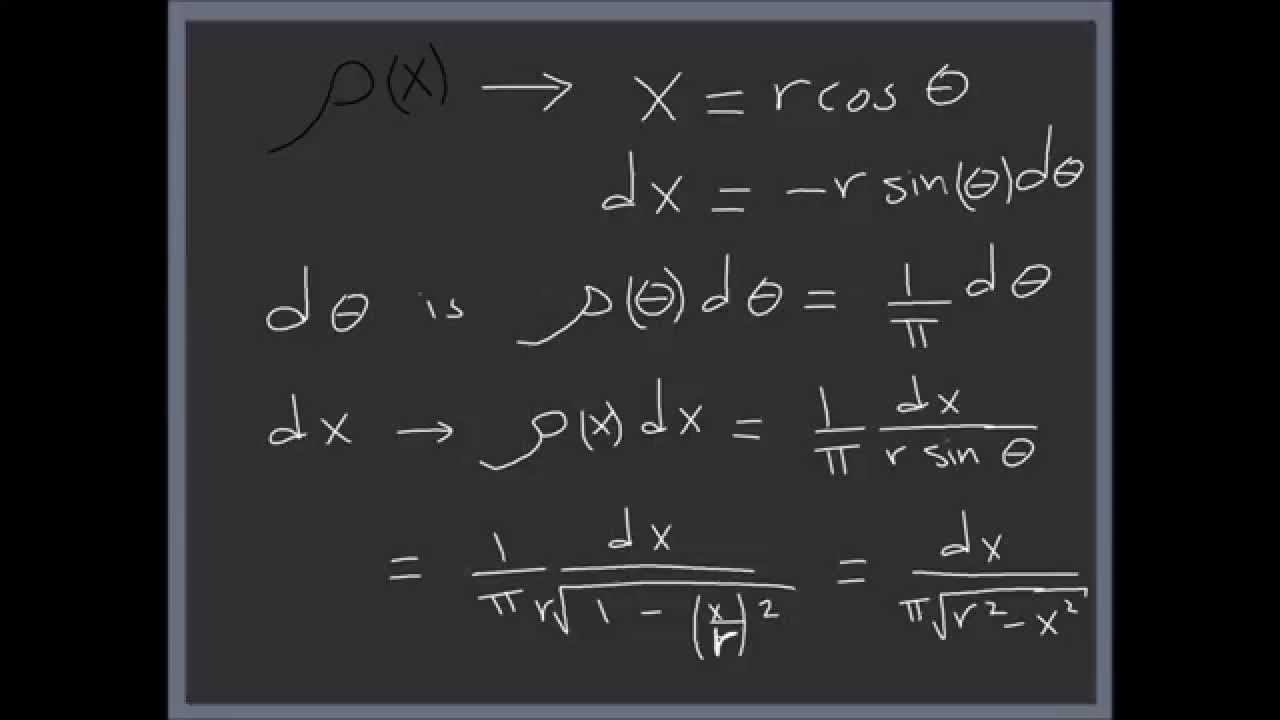 ρ(x) → x = r cos θ
dx = -r sin(θ)dθ
dθ is ρ(θ)dθ = 1/π dθ
dx → ρ(x)dx = 1/π dx/(r sin θ)
= 1/π dx/(r√(1 - (x/r)²)) = dx/(π√(r² - x²))